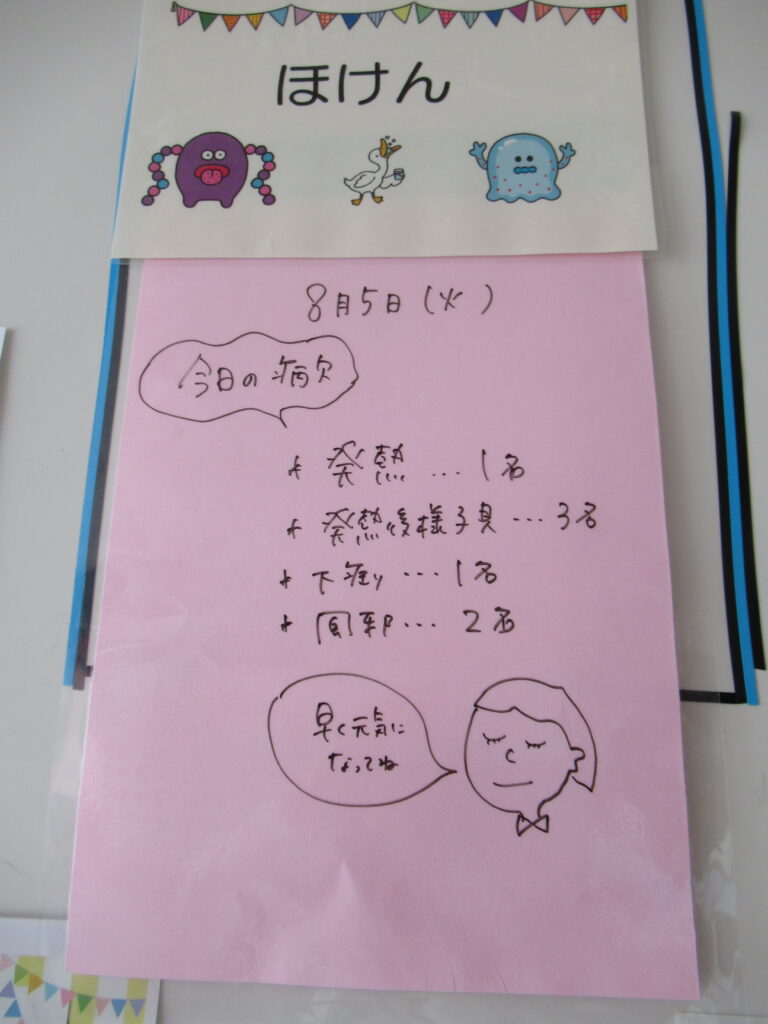 ほけん
8月5日(火)
今日の病欠
* 発熱 … 1名
* 発熱後様子見 … 3名
* 下痢 … 1名
* 風邪 … 2名
早く元気に
なってね